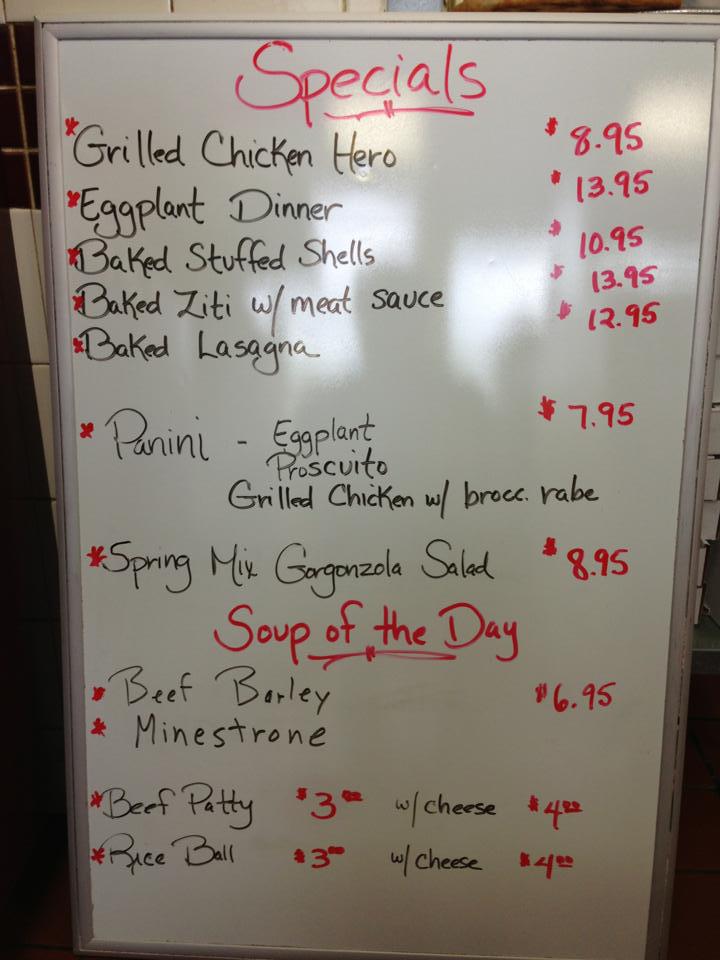 Specials
* Grilled Chicken Hero $ 8.95
* Eggplant Dinner $ 13.95
* Baked Stuffed Shells $ 10.95
* Baked Ziti w/ meat sauce $ 13.95
* Baked Lasagna $ 12.95
* Panini - Eggplant $ 7.95
Proscuito
Grilled Chicken w/ brocc. rabe
* Spring Mix Gorgonzola Salad $ 8.95
Soup of the Day
* Beef Barley $ 6.95
* Minestrone
* Beef Patty $3.00 w/ cheese $4.00
* Rice Ball $3.00 w/ cheese $4.00